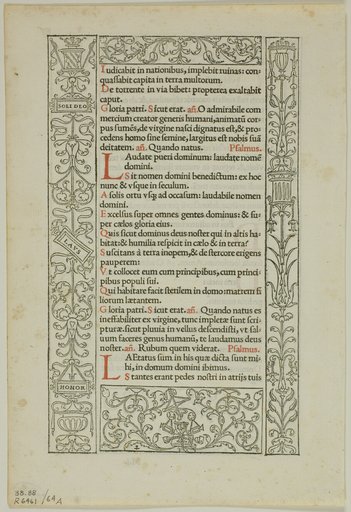 Iudicabit in nationibus, implebit ruinas: con-
quassabit capita in terra multorum.
De torrente in via bibet: propterea exaltabit
caput.
Gloria patri. Sicut erat. añ. O admirabile com
mercium creator generis humani, animatũ cor
pus sumẽs, de virgine nasci dignatus est, & pro
cedens homo sine semine, largitus est nobis suã
deitatem. añ. Quando natus. Psalmus.
LAudate pueri dominum: laudate nomẽ
domini.
Sit nomen domini benedictum: ex hoc
nunc & vsque in seculum.
A solis ortu vsq; ad occasum: laudabile nomen
domini.
Excelsus super omnes gentes dominus: & su-
per cælos gloria eius.
Quis sicut dominus deus noster qui in altis ha-
bitat: & humilia respicit in cælo & in terra?
Suscitans à terra inopem, & de stercore erigens
pauperem:
Vt collocet eum cum principibus, cum princi-
pibus populi sui.
Qui habitare facit sterilem in domo: matrem fi
liorum lætantem.
Gloria patri. Sicut erat. añ. Quando natus es
ineffabiliter ex virgine, tunc impletæ sunt scri-
pturæ. sicut pluuia in vellus descendisti, vt sal-
uum faceres genus humanũ, te laudamus deus
noster. añ. Rubum quem viderat. Psalmus.
LÆtatus sum in his quæ dicta sunt mi-
hi, in domum domini ibimus.
Stantes erant pedes nostri in atrijs tuis
SOLI DEO
LAVS
HONOR
38.88
R6461 / 64A